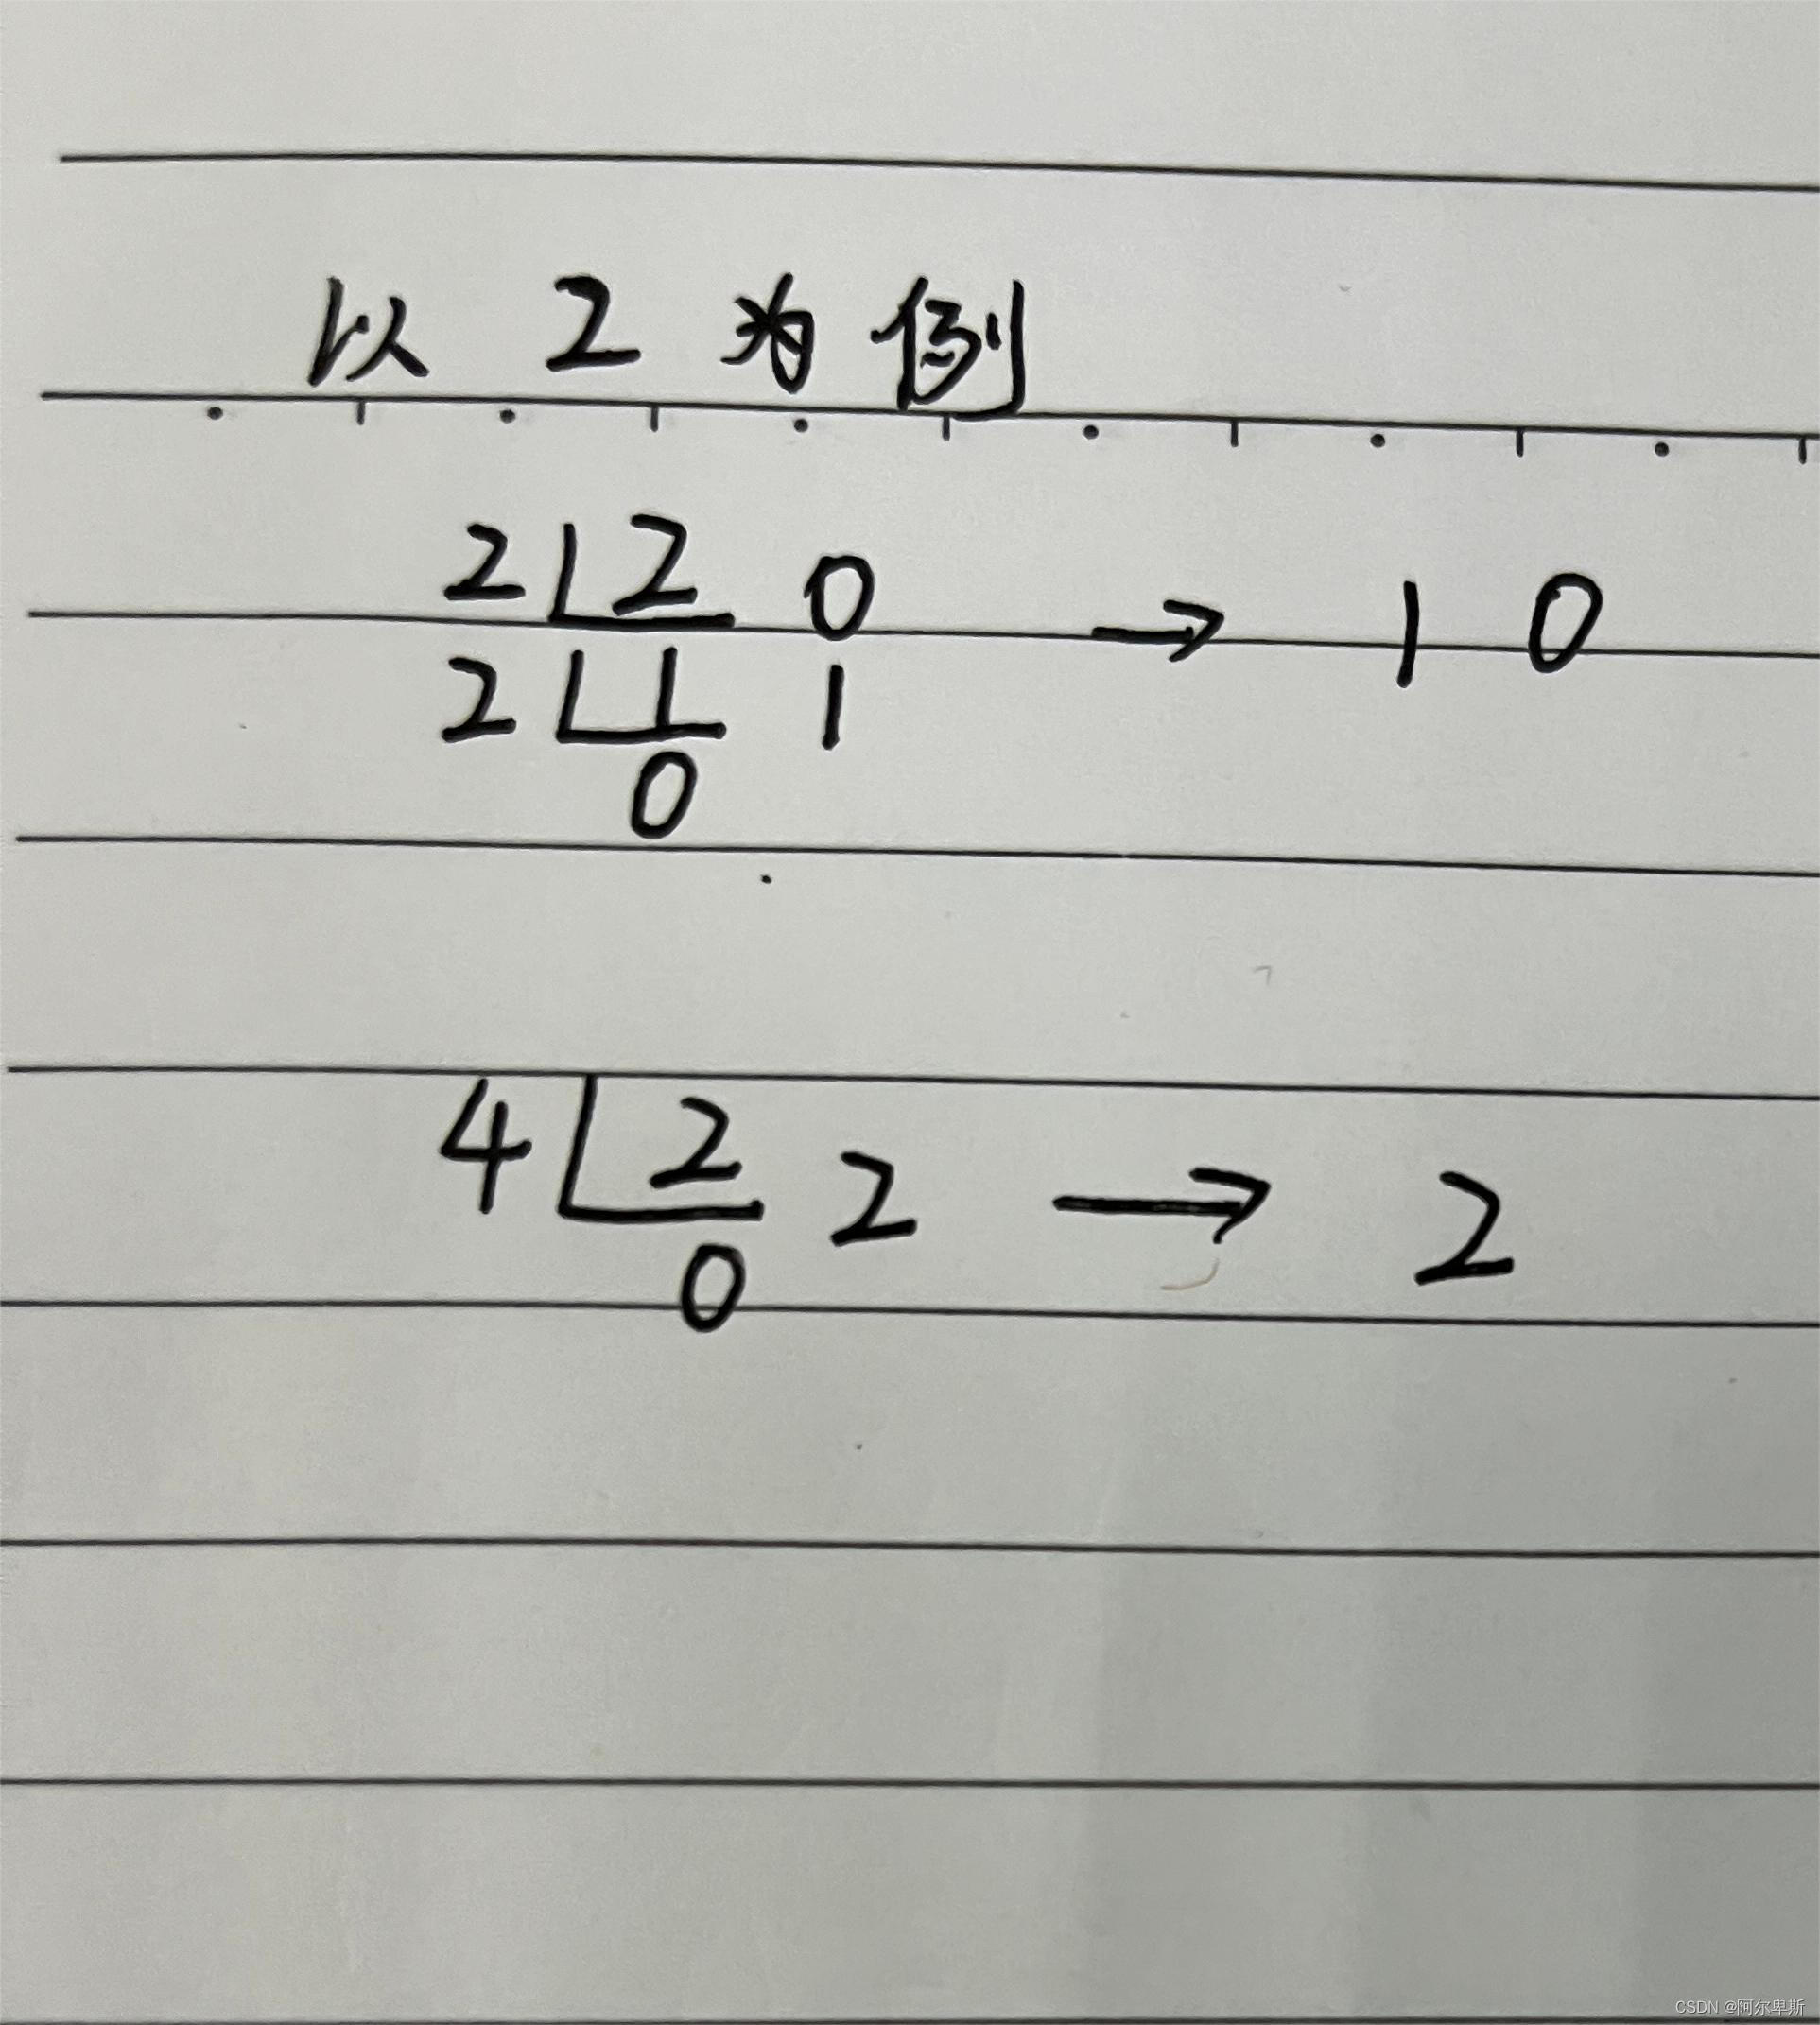 以 2 为 例
2 2 0 → 1 0
2 1 1
0
4 2 2 → 2
0
CSDN @阿尔卑斯